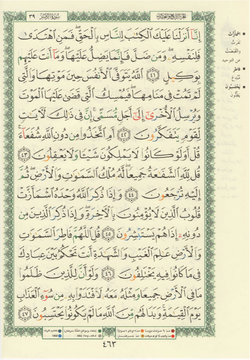 إِنَّا أَنزَلْنَا عَلَيْكَ الْكِتَٰبَ لِلنَّاسِ بِالْحَقِّ ۖ فَمَنِ اهْتَدَىٰ
فَلِنَفْسِهِ ۖ وَمَن ضَلَّ فَإِنَّمَا يَضِلُّ عَلَيْهَا ۖ وَمَا أَنتَ عَلَيْهِم
بِوَكِيلٍ ٤١ اللَّهُ يَتَوَفَّى الْأَنفُسَ حِينَ مَوْتِهَا وَالَّتِي
لَمْ تَمُتْ فِي مَنَامِهَا ۖ فَيُمْسِكُ الَّتِي قَضَىٰ عَلَيْهَا الْمَوْتَ
وَيُرْسِلُ الْأُخْرَىٰ إِلَىٰ أَجَلٍ مُّسَمًّى ۚ إِنَّ فِي ذَٰلِكَ لَآيَٰتٍ
لِّقَوْمٍ يَتَفَكَّرُونَ ٤٢ أَمِ اتَّخَذُوا مِن دُونِ اللَّهِ شُفَعَاءَ ۚ
قُلْ أَوَلَوْ كَانُوا لَا يَمْلِكُونَ شَيْـًٔا وَلَا يَعْقِلُونَ ٤٣
قُل لِّلَّهِ الشَّفَٰعَةُ جَمِيعًا ۖ لَّهُ مُلْكُ السَّمَٰوَٰتِ وَالْأَرْضِ ۖ ثُمَّ
إِلَيْهِ تُرْجَعُونَ ٤٤ وَإِذَا ذُكِرَ اللَّهُ وَحْدَهُ اشْمَأَزَّتْ
قُلُوبُ الَّذِينَ لَا يُؤْمِنُونَ بِالْآخِرَةِ ۖ وَإِذَا ذُكِرَ الَّذِينَ مِن
دُونِهِ إِذَا هُمْ يَسْتَبْشِرُونَ ٤٥ قُلِ اللَّهُمَّ فَاطِرَ السَّمَٰوَٰتِ
وَالْأَرْضِ عَٰلِمَ الْغَيْبِ وَالشَّهَٰدَةِ أَنتَ تَحْكُمُ بَيْنَ عِبَادِكَ
فِي مَا كَانُوا فِيهِ يَخْتَلِفُونَ ٤٦ وَلَوْ أَنَّ لِلَّذِينَ ظَلَمُوا
مَا فِي الْأَرْضِ جَمِيعًا وَمِثْلَهُ مَعَهُ لَافْتَدَوْا بِهِ مِن سُوءِ الْعَذَابِ
يَوْمَ الْقِيَٰمَةِ ۚ وَبَدَا لَهُم مِّنَ اللَّهِ مَا لَمْ يَكُونُوا يَحْتَسِبُونَ ٤٧
٤٦٣